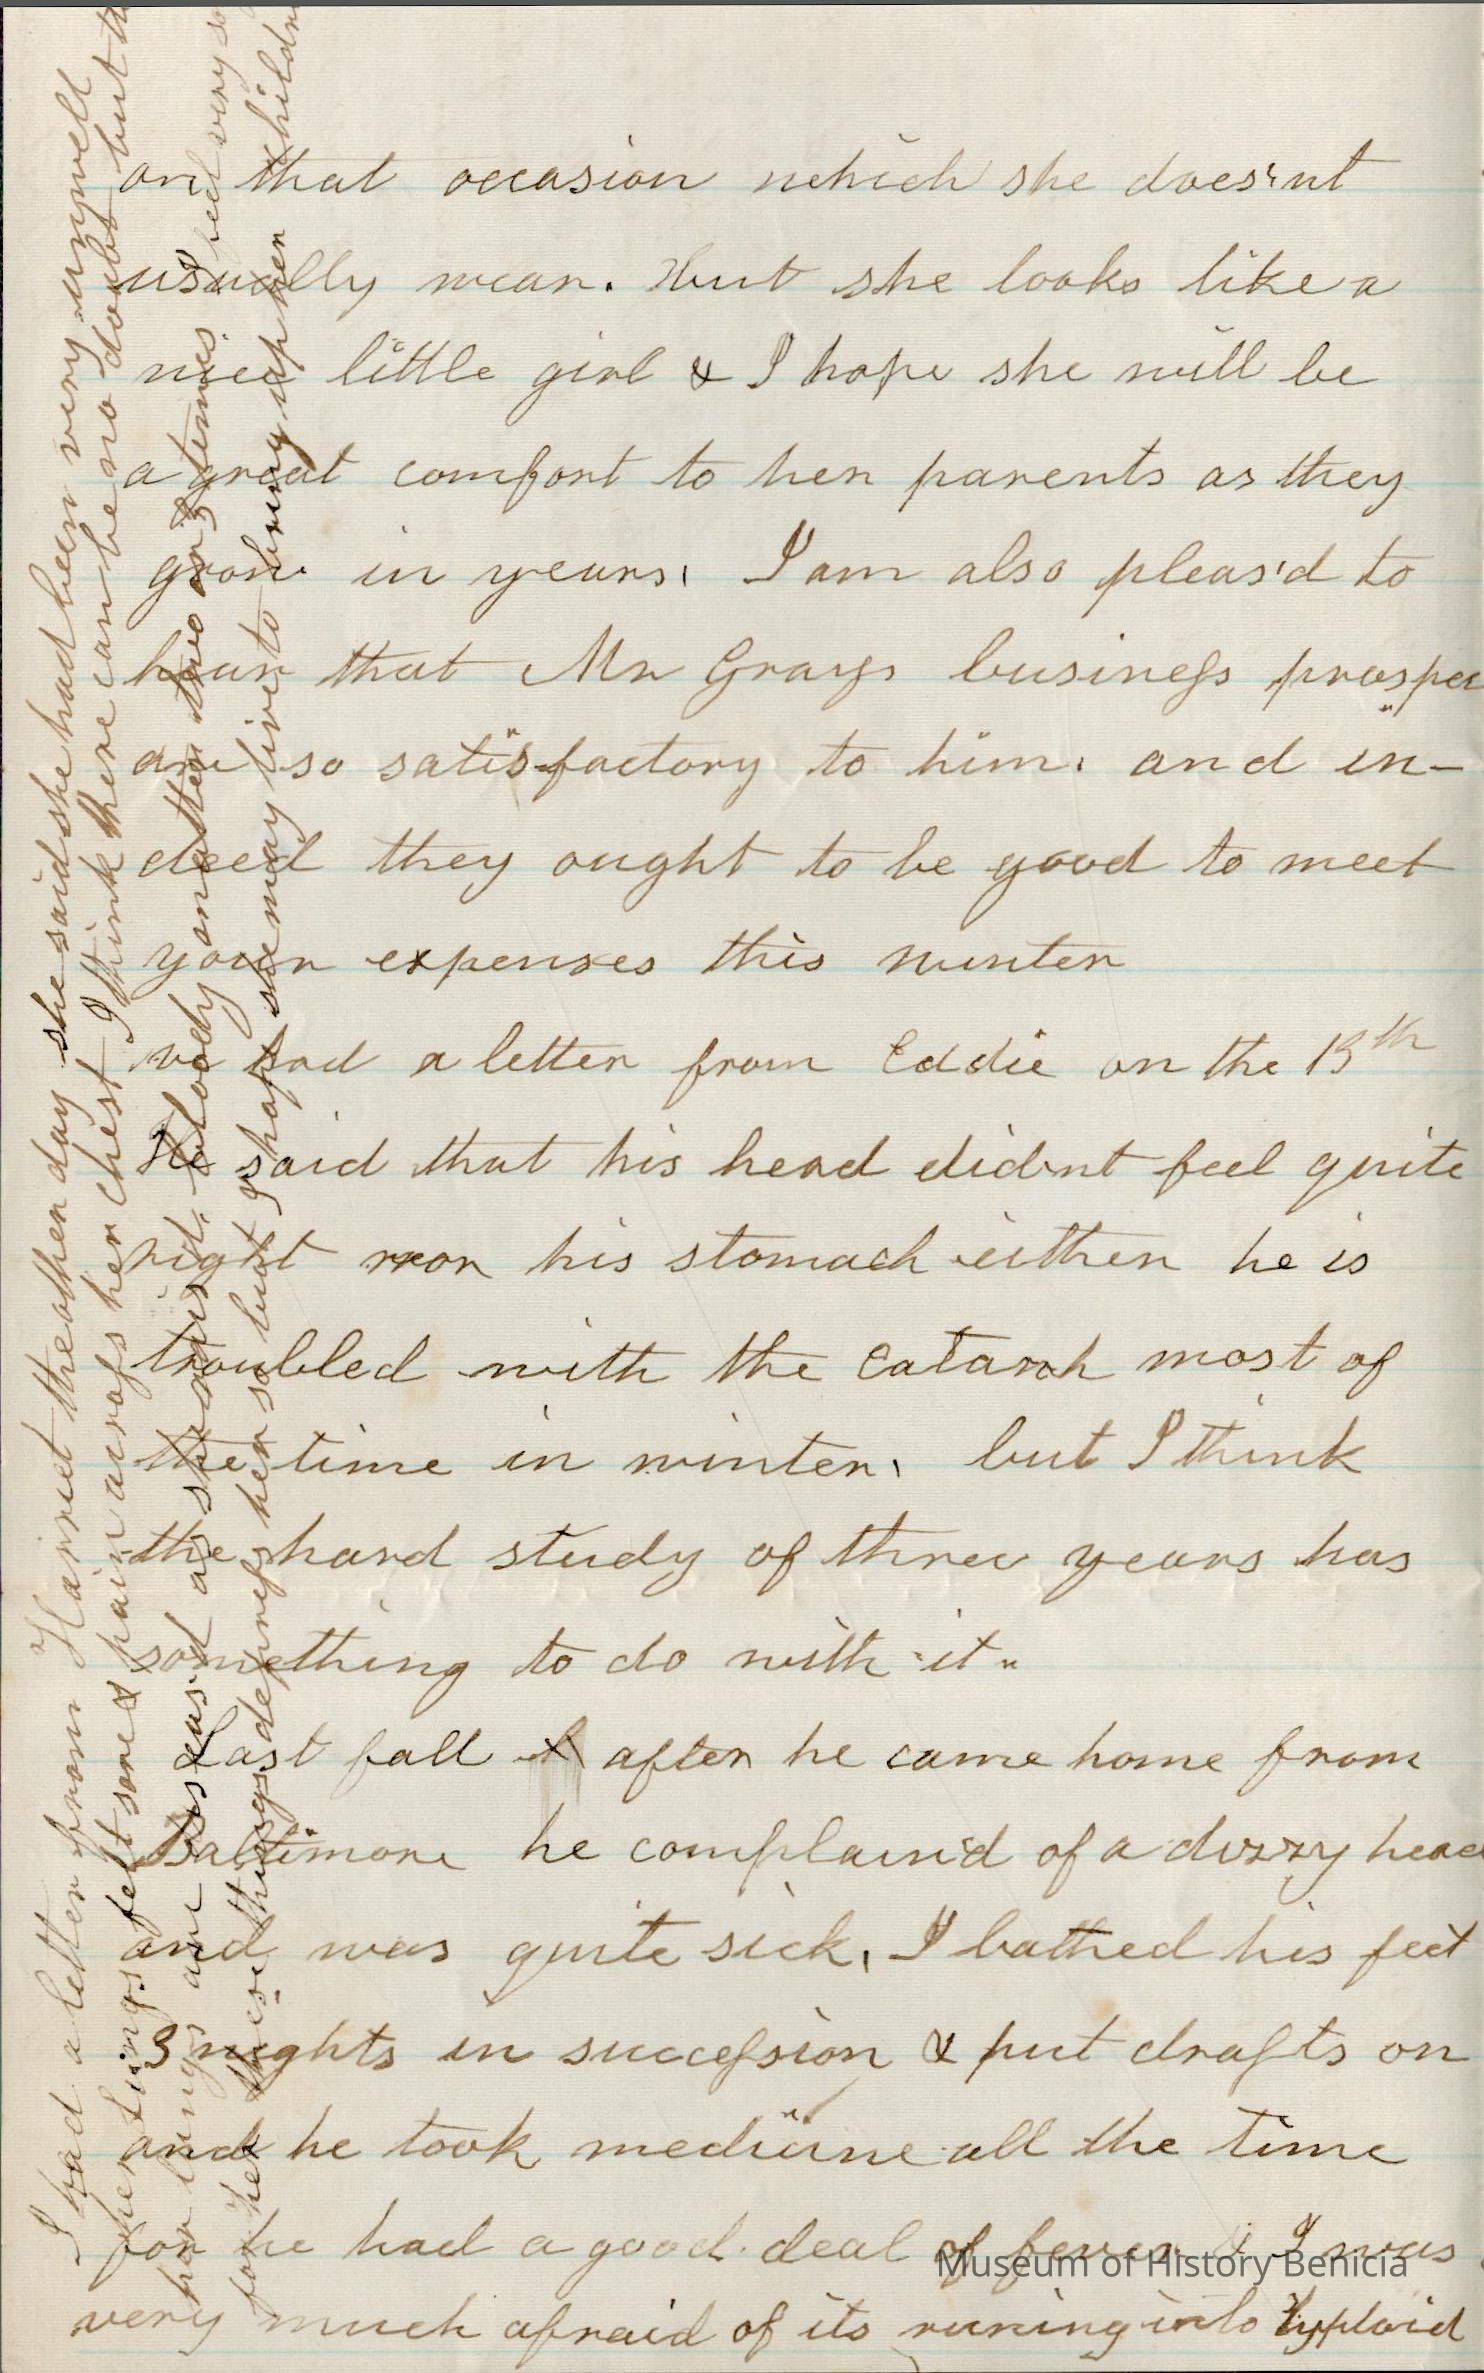 on that occasion which she does'nt
usually wear. But she looks like a
nice little girl & I hope she will be
a great comfort to her parents as they
grow in years. I am also pleas'd to
hear that Mr Grays business prospec
are so satisfactory to him. and in-
deed they ought to be good to meet
your expenses this winter
we had a letter from Eddie on the 13th
He said that his head didnt feel quite
right nor his stomach either he is
troubled with the Catarrh most of
the time in winter, but I think
the hard study of three years has
something to do with it"
Last fall after he came home from
Baltimore he complain'd of a dizzy head
and was quite sick, I bathed his feet
3 nights in succession & put drafts on
and he took medicine all the time
for he had a good deal of fever & I was
very much afraid of its runing into Typhoid
I had a letter from Harriet the other day she said she had been very unwell
her lungs felt sore & pain across her chest I think there can be no doubt but th
her lungs are diseas'd as she rais'd bloody matter two or 3 times I feel very so
for her these things depress her so but I hope she may live to bring up her childr
Museum of History Benicia